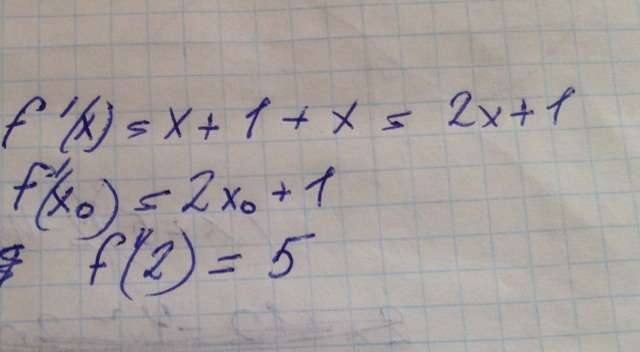 f'(x) = x + 1 + x = 2x + 1
f'(x₀) = 2x₀ + 1
f'(2) = 5